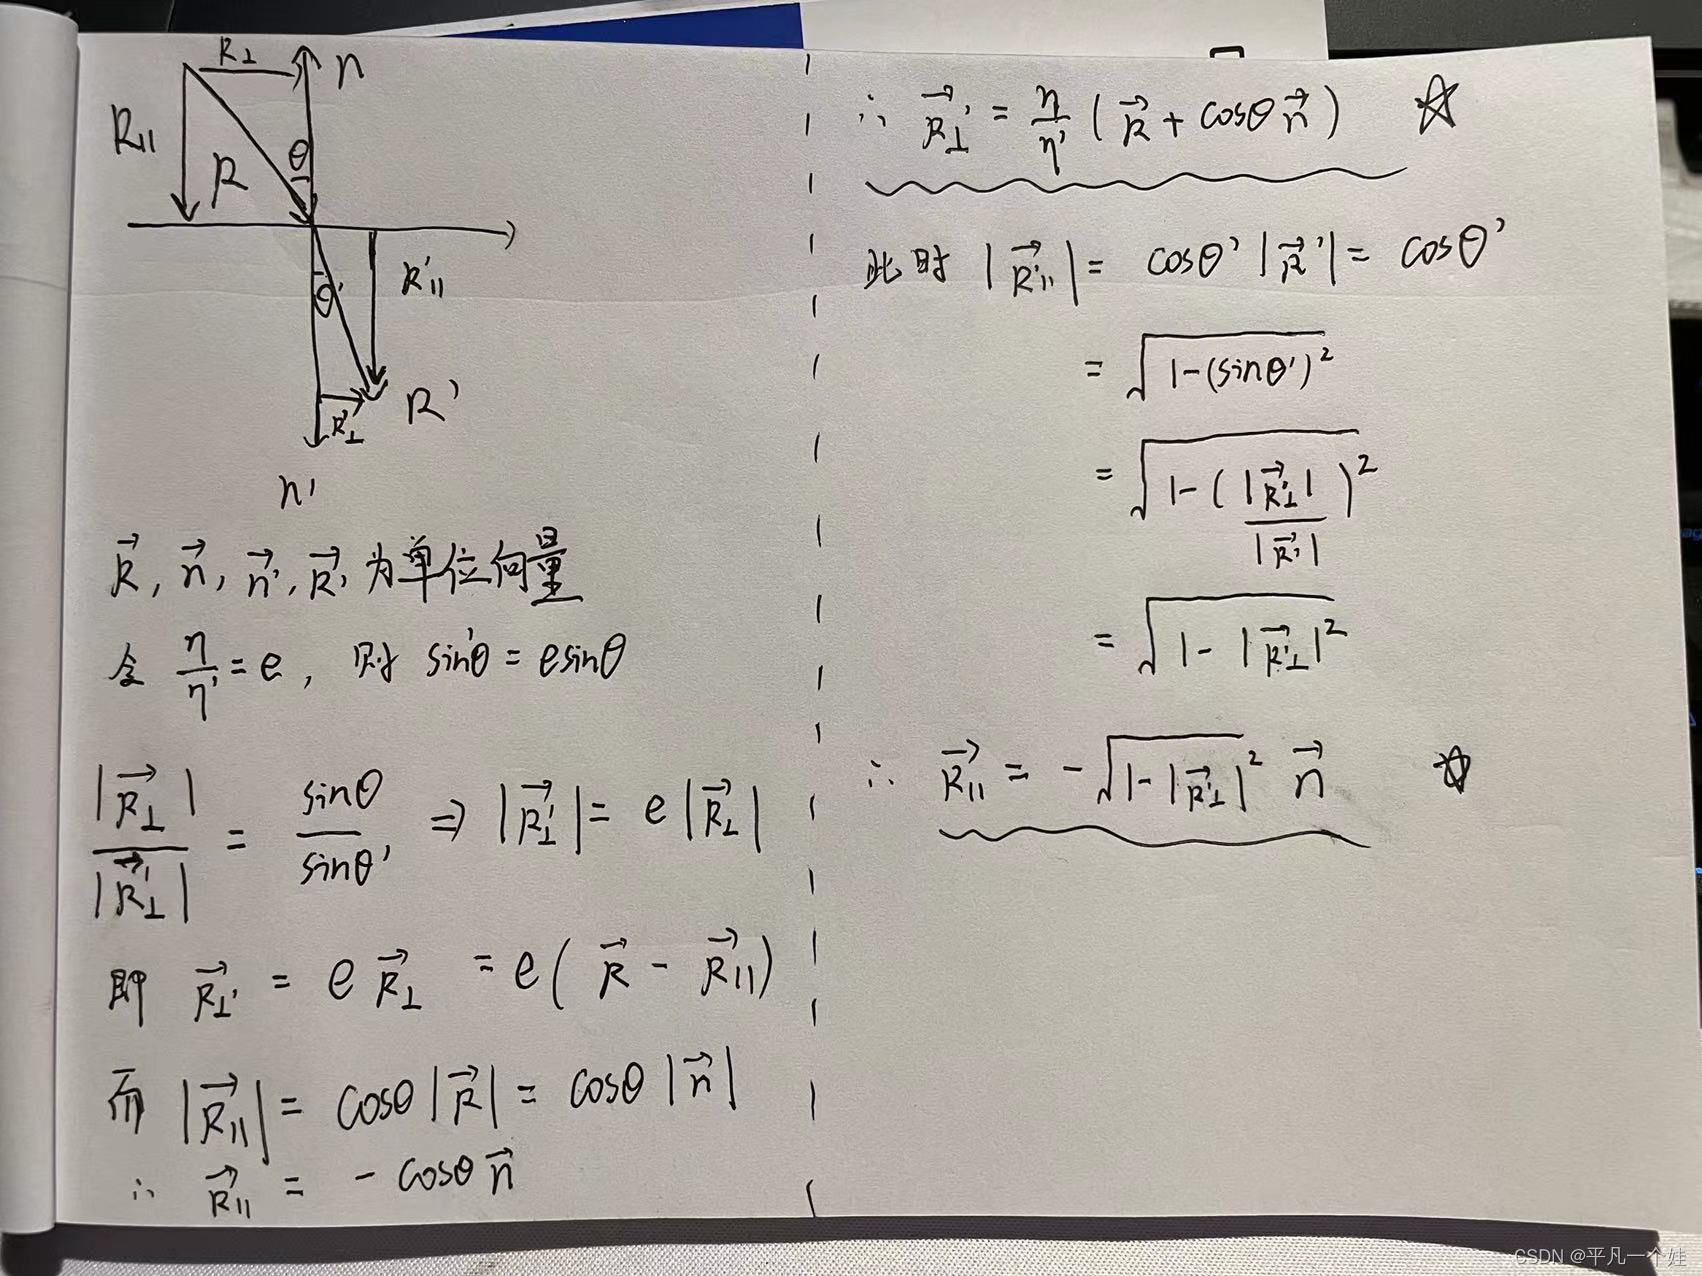 R⊥
n
R||
R
θ
θ'
R'||
R'⊥
R'
n'
R⃗, n⃗, n⃗', R⃗' 为单位向量
令 η/η' = e, 则 sin'θ = e sinθ
|R⃗⊥| / |R⃗'⊥| = sinθ / sinθ' ⇒ |R⃗'⊥| = e |R⃗⊥|
即 R⃗⊥' = e R⃗⊥ = e( R⃗ - R⃗|| )
而 |R⃗||| = cosθ |R⃗| = cosθ |n⃗|
∴ R⃗|| = - cosθ n⃗
∴ R⃗⊥' = η/η' ( R⃗ + cosθ n⃗ ) ☆
此时 |R⃗'||| = cosθ' |R⃗'| = cosθ'
= √(1-(sinθ')²)
= √(1-( |R⃗'⊥| / |R⃗'| )²)
= √(1- |R⃗'⊥|²)
∴ R⃗|| = - √(1-|R⃗'⊥|²) n⃗ ☆
CSDN @平凡一个娃